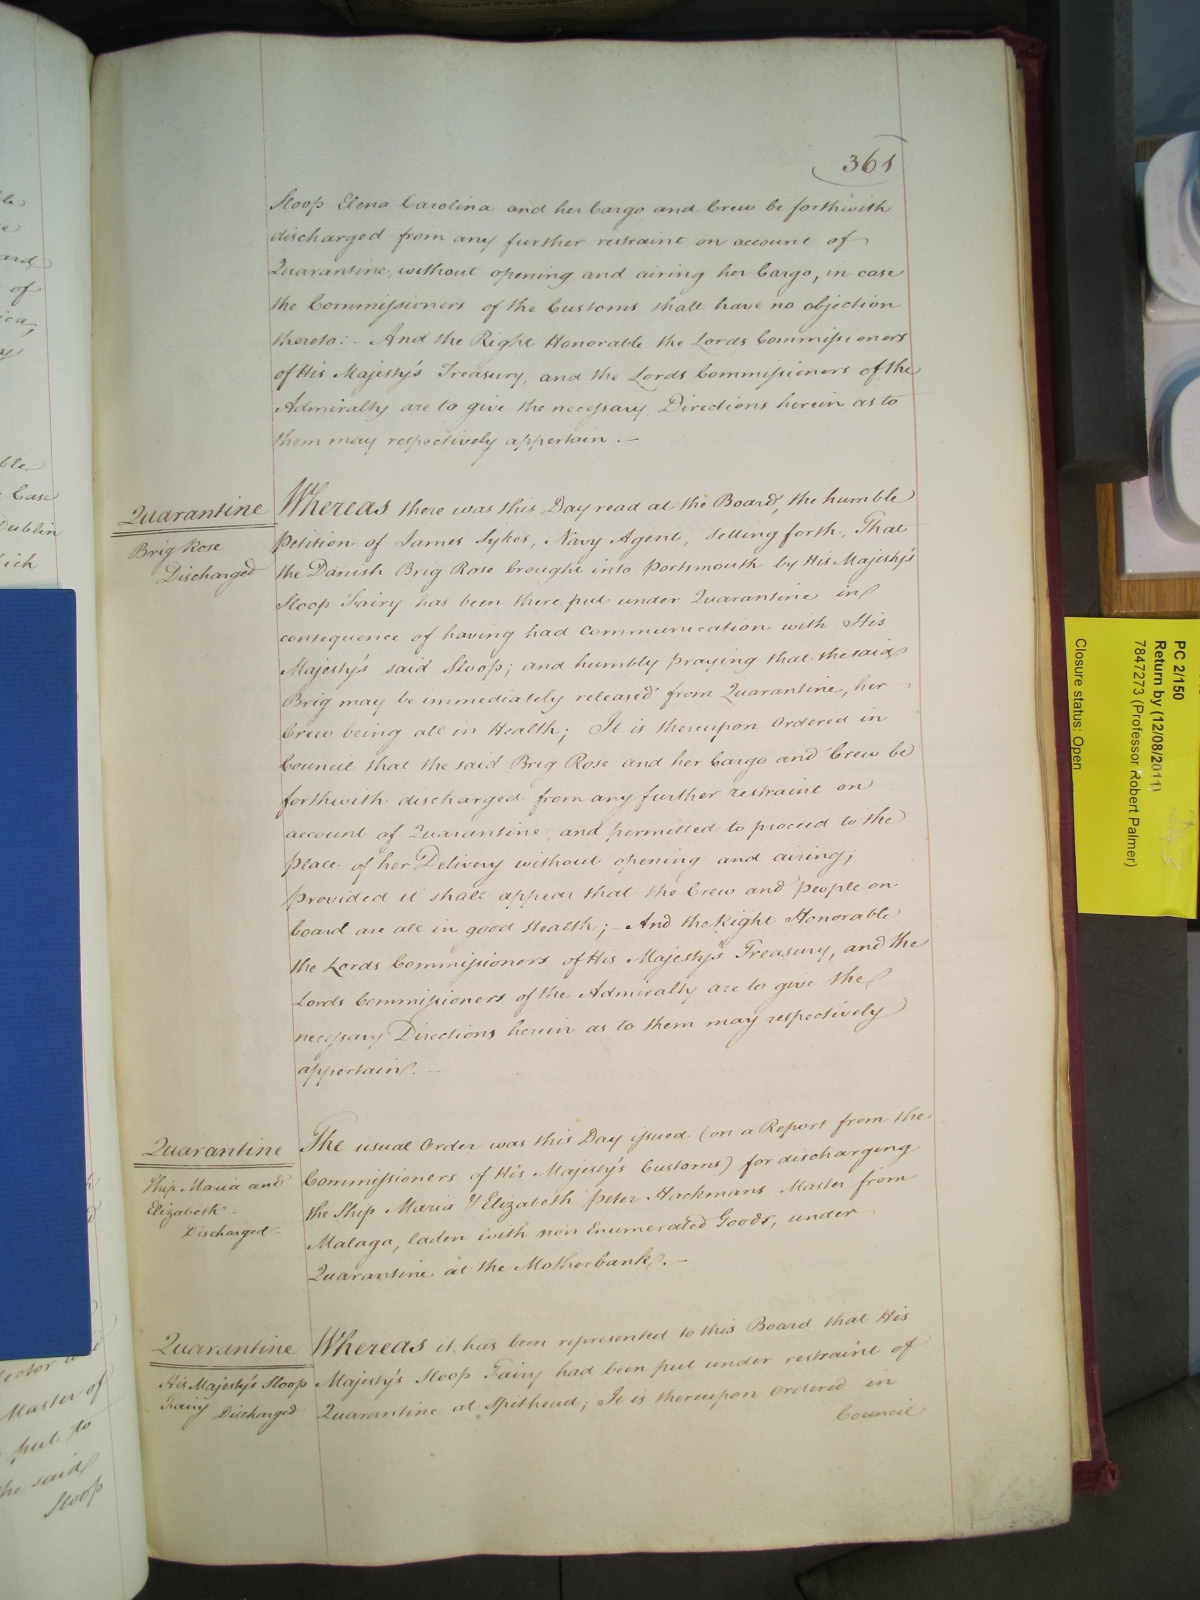 361
Sloop Elena Carolina and her Cargo and Crew be forthwith
discharged from any further restraint on account of
Quarantine, without opening and airing her Cargo, in case
the Commissioners of the Customs shall have no objection
thereto:- And the Right Honorable the Lords Commissioners
of His Majesty's Treasury, and the Lords Commissioners of the
Admiralty are to give the necessary Directions herein as to
them may respectively appertain.-
Quarantine
Brig Rose
Discharged
Whereas there was this Day read at the Board, the humble
Petition of James Sykes, Navy Agent, setting forth, That
the Danish Brig Rose brought into Portsmouth by His Majesty's
Sloop Fairy has been there put under Quarantine in
consequence of having had communication with His
Majesty's said Sloop; and humbly praying that the said
Brig may be immediately released from Quarantine, her
Crew being all in Health; It is thereupon Ordered in
Council that the said Brig Rose and her Cargo and Crew be
forthwith discharged from any further restraint on
account of Quarantine, and permitted to proceed to the
place of her Delivery without opening and airing;
provided it shall appear that the Crew and people on
board are all in good Health;- And the Right Honorable
the Lords Commissioners of His Majesty's Treasury, and the
Lords Commissioners of the Admiralty are to give the
necessary Directions herein as to them may respectively
appertain.-
Quarantine
Ship Maria and
Elizabeth
Discharged
The usual Order was this Day issued (on a Report from the
Commissioners of His Majesty's Customs) for discharging
the Ship Maria & Elizabeth Peter Hackmans Master from
Malaga, laden with non Enumerated Goods, under
Quarantine at the Motherbank.-
Quarantine
His Majesty's Sloop
Fairy Discharged
Whereas it has been represented to this Board that His
Majesty's Sloop Fairy had been put under restraint of
Quarantine at Spithead; It is thereupon Ordered in
Council
of
ble
Case
Dublin
Master of
put to
the said
Sloop
PC 2/150
Return by (12/08/2011)
7847273 (Professor Robert Palmer)
Closure status: Open